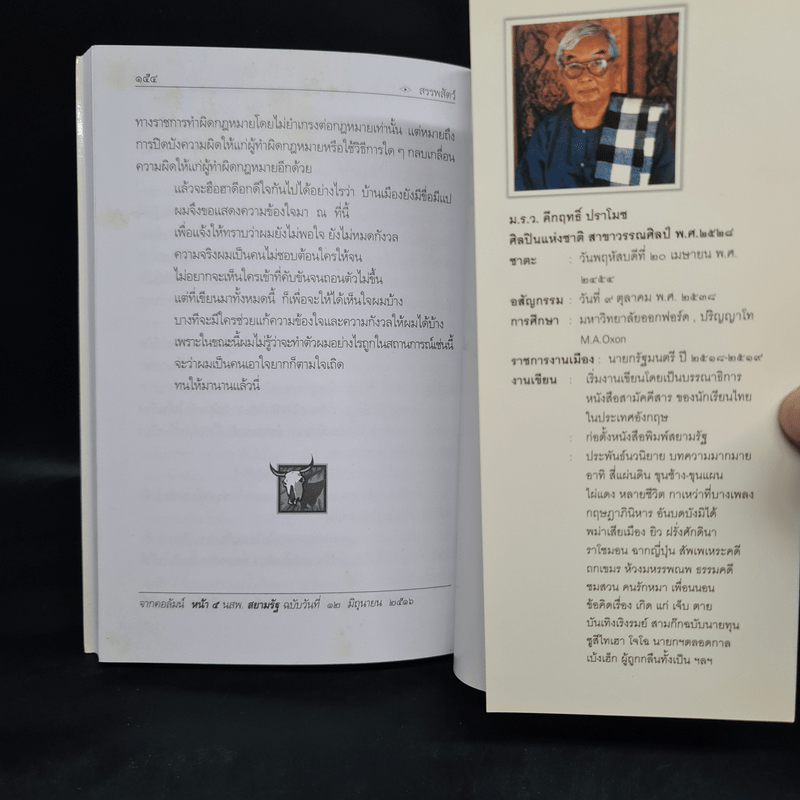 ๑๕๔
สรรพสัตว์
ทางราชการทำผิดกฎหมายโดยไม่ยำเกรงต่อกฎหมายเท่านั้น แต่หมายถึง
การปิดบังความผิดให้แก่ผู้ทำผิดกฎหมายหรือใช้วิธีการใด ๆ กลบเกลื่อน
ความผิดให้แก่ผู้ทำผิดกฎหมายอีกด้วย
แล้วจะฮือฮาดีอกดีใจกันไปได้อย่างไรว่า บ้านเมืองยังมีขื่อมีแป
ผมจึงขอแสดงความข้องใจมา ณ ที่นี้
เพื่อแจ้งให้ทราบว่าผมยังไม่พอใจ ยังไม่หมดกังวล
ความจริงผมเป็นคนไม่ชอบต้อนใครให้จน
ไม่อยากจะเห็นใครเข้าที่คับขันจนถอนตัวไม่ขึ้น
แต่ที่เขียนมาทั้งหมดนี้ ก็เพื่อจะให้ได้เห็นใจผมบ้าง
บางทีจะมีใครช่วยแก้ความข้องใจและความกังวลให้ผมได้บ้าง
เพราะในขณะนี้ผมไม่รู้ว่าจะทำตัวผมอย่างไรถูกในสถานการณ์เช่นนี้
จะว่าผมเป็นคนเอาใจยากก็ตามใจเถิด
ทนให้มานานแล้วนี่
จากคอลัมน์ หน้า ๕ นสพ. สยามรัฐ ฉบับวันที่ ๑๒ มิถุนายน ๒๕๑๖
ม.ร.ว. คึกฤทธิ์ ปราโมช
ศิลปินแห่งชาติ สาขาวรรณศิลป์ พ.ศ.๒๕๒๘
ชาตะ : วันพฤหัสบดีที่ ๒๐ เมษายน พ.ศ.
๒๔๕๔
อสัญกรรม : วันที่ ๙ ตุลาคม พ.ศ. ๒๕๓๘
การศึกษา : มหาวิทยาลัยออกฟอร์ด , ปริญญาโท
M.A.Oxon
ราชการงานเมือง : นายกรัฐมนตรี ปี ๒๕๑๘-๒๕๑๙
งานเขียน : เริ่มงานเขียนโดยเป็นบรรณาธิการ
หนังสือสามัคคีสาร ของนักเรียนไทย
ในประเทศอังกฤษ
: ก่อตั้งหนังสือพิมพ์สยามรัฐ
: ประพันธ์นวนิยาย บทความมากมาย
อาทิ สี่แผ่นดิน ขุนช้าง-ขุนแผน
ไผ่แดง หลายชีวิต กาเหว่าที่บางเพลง
กฤษฎาภินิหาร อันบดบังมิได้
พม่าเสียเมือง ยิว ฝรั่งศักดินา
ราโชมอน ฉากญี่ปุ่น สัพเพเหระคดี
ถกเขมร ห้วงมหรรณพ ธรรมคดี
ชมสวน คนรักหมา เพื่อนนอน
ข้อคิดเรื่อง เกิด แก่ เจ็บ ตาย
บันเทิงเริงรมย์ สามก๊กฉบับนายทุน
ซูสีไทเฮา โจโฉ นายกฯตลอดกาล
เบ้งเฮ็ก ผู้ถูกกลืนทั้งเป็น ฯลฯ